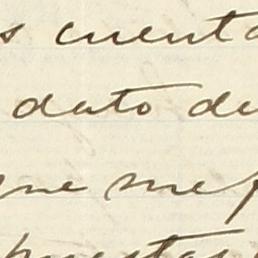 s cuenta
dato de
que me f
puestas